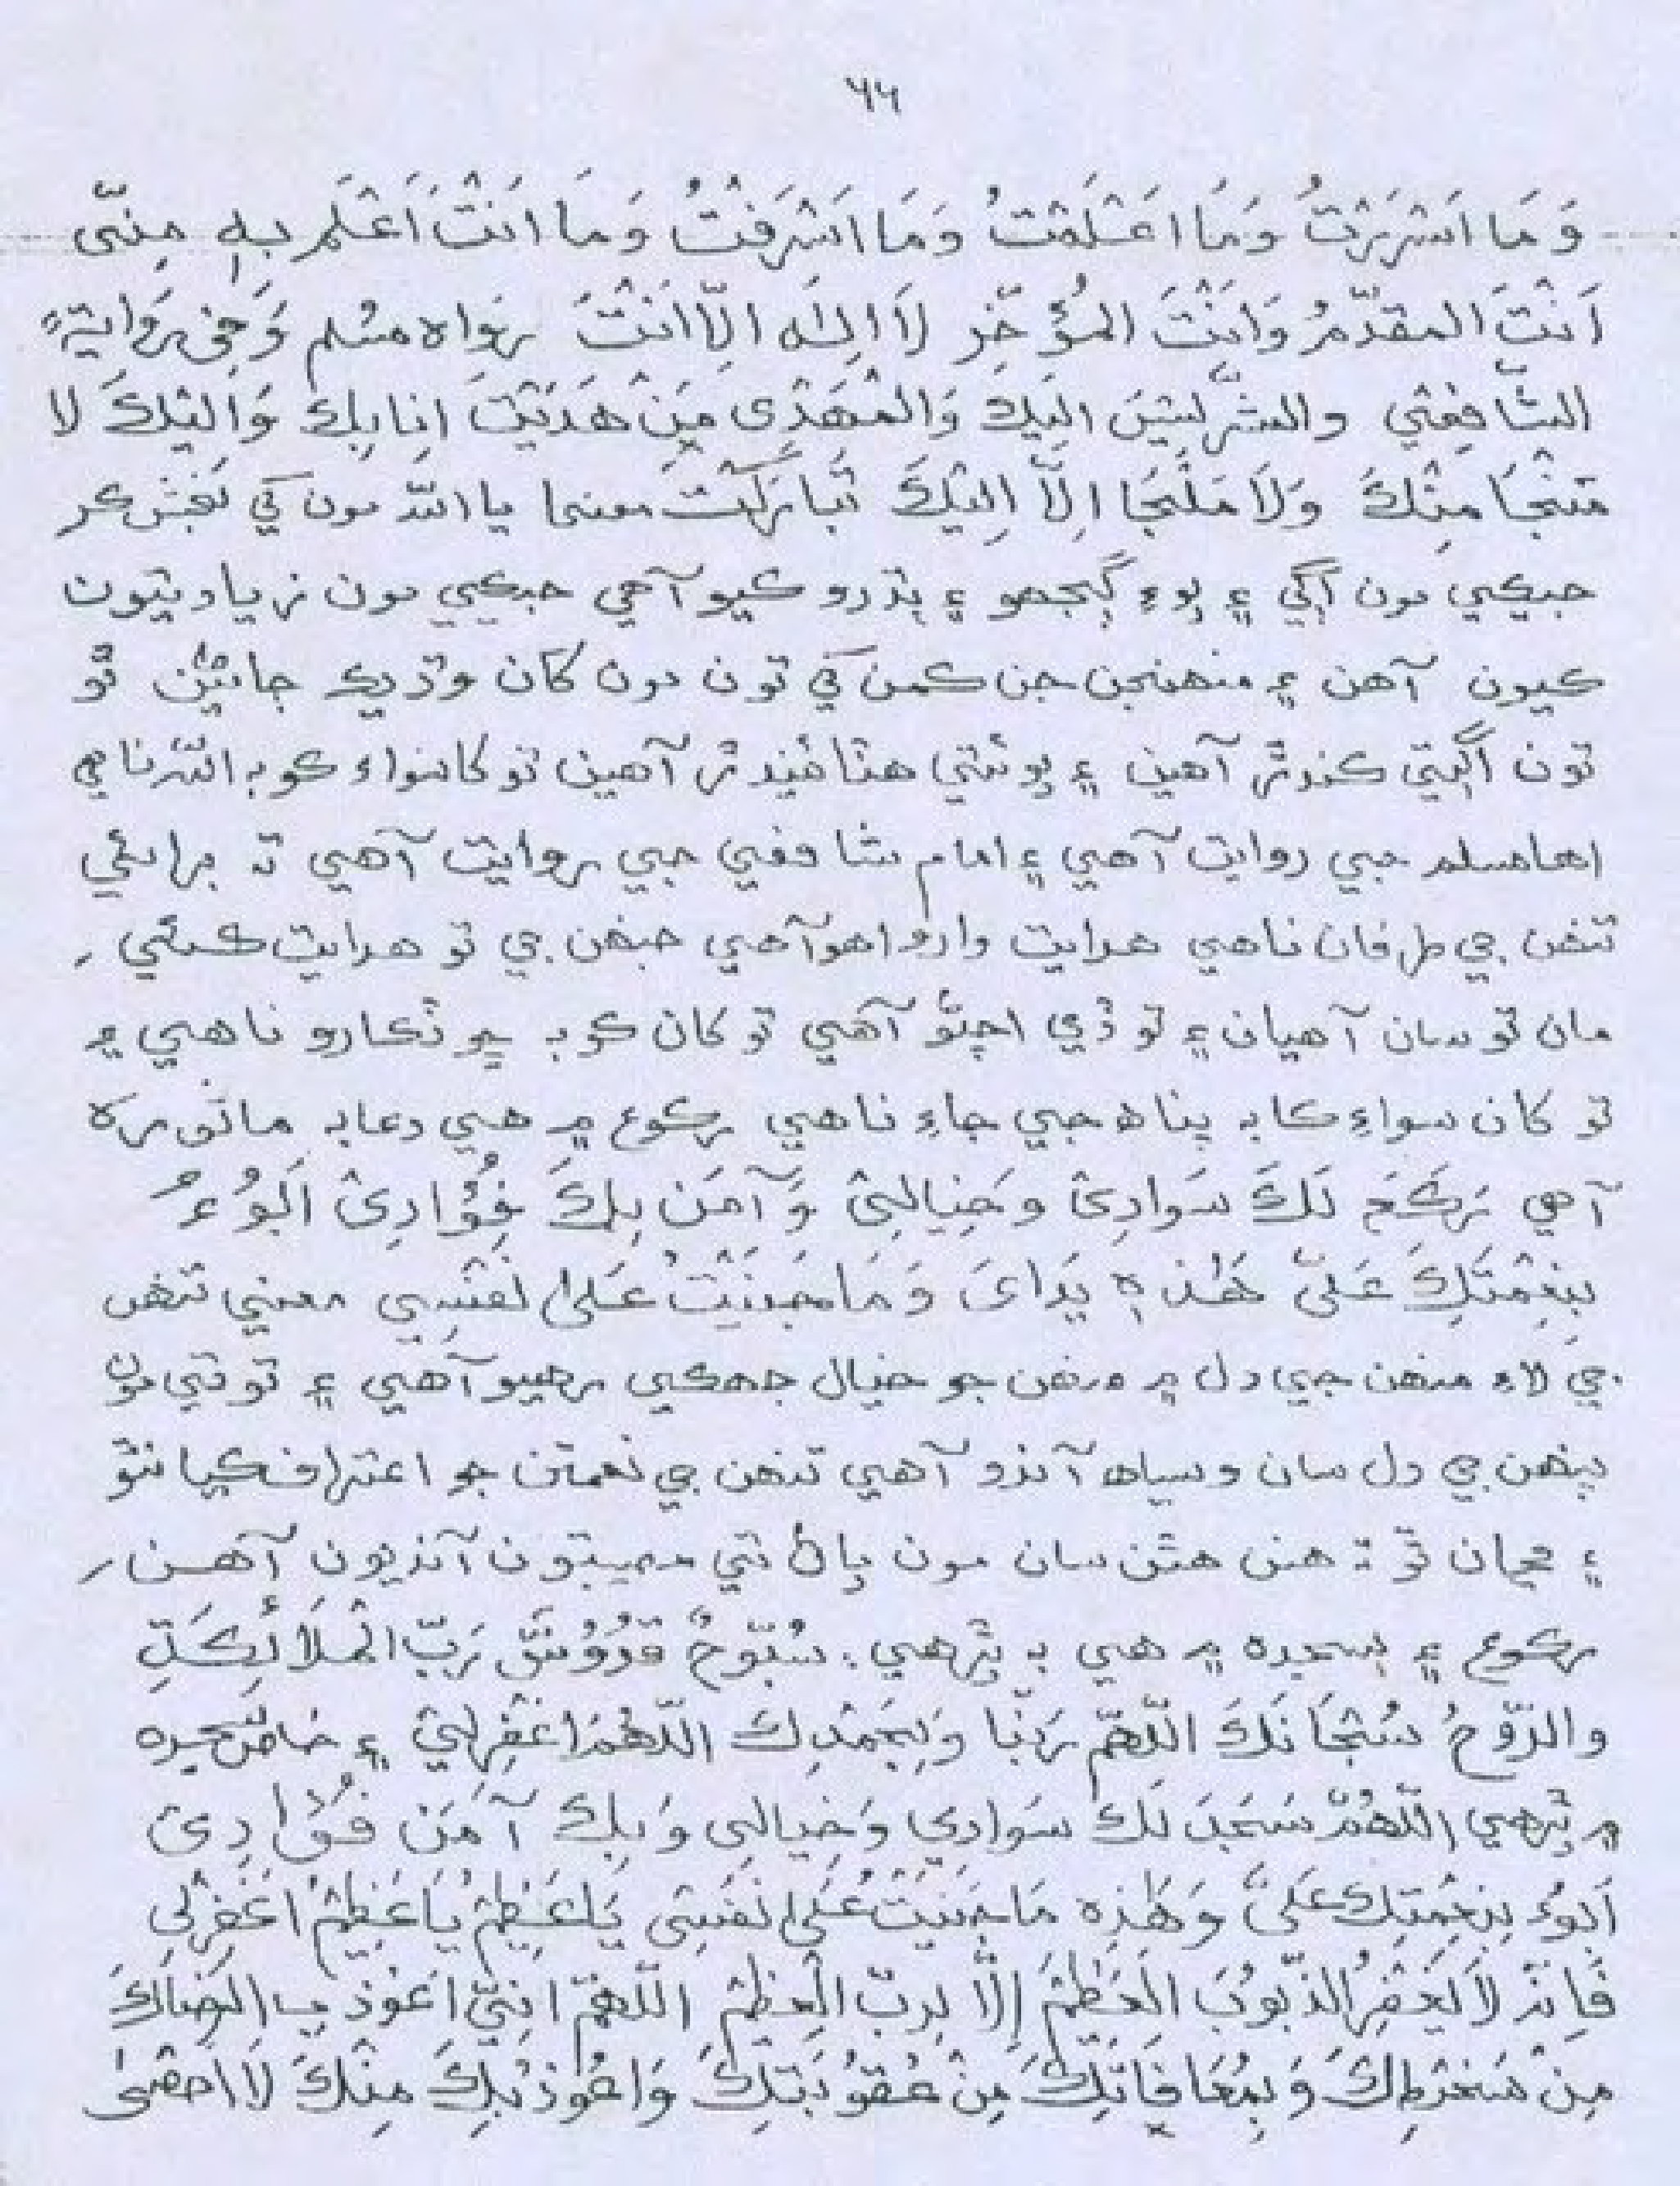 ٦٦
وَمَا اَسْرَرْتُ وَمَا اَعْلَمْتُ وَمَا اَسْرَفْتُ وَمَا اَنْتَ اَعْلَمُ بِهٖ مِنِّی
اَنْتَ المقدِّمُ وَاَنْتَ المُؤَخِّر لَا اِلٰهَ اِلَّا اَنْتَ رواه مسلم وَفِی رَوایةٍ
الشّافِعْي والشَّر لَيْسَ اِلَيْكَ وَالْمَهْدِی مَنْ هَدَيْتَ اِنا بِكَ وَاِلَيْكَ لا
مَنْجَا مِنْكَ وَلَا مَلْجَا اِلَّا اِلَيْكَ تَبَارَكْتَ معنيٰ يا الله مون کي بخش کر
جيڪي مون اڳي ۽ پوءِ ڳجهو ۽ پڌرو ڪيو آهي جيڪي مون زيادتيون
ڪيون آهن ۽ منهنجن جن ڪمن کي تون مون کان وڌيڪ ڄاڻين ٿو
تون اڳتي ڪندڙ آهين ۽ پوئتي هٽائيندڙ آهين توکان سواءِ ڪو به الله ناهي
اها مسلم جي روايت آهي ۽ امام شافعي جي روايت آهي ته برائي
تنهن جي طرفان ناهي هدايت وارو اهو آهي جنهن جي تو هدايت ڪئي ،
مان تو سان آهيان ۽ تو ڏي اچڻو آهي تو کان ڪو به ڇوٽڪارو ناهي ۽
تو کان سواءِ ڪا به پناهه جي جاءِ ناهي رڪوع ۾ هي دعا به ماثوره
آهي رَكَعَ لَكَ سَوادِیْ وخَيالِیْ وَآمَنَ بِكَ فُؤَادِیْ اَبُوْءُ
بِنِعْمَتِكَ عَلَیَّ هٰذِهٖ يَدَایَ وَمَا جَنَيْتُ عَلیٰ نَفْسِي معنيٰ تنهن
جي لاءِ منهن جي دل ۾ منهن جو خيال جهڪي رهيو آهي ۽ تو تي مون
پنهن جي دل سان ويساهه آندو آهي تنهن جي نعمتن جو اعتراف ڪيان ٿو
۽ مڃان ٿو ته هنن هٿن سان مون پاڻ تي مصيبتون آنديون آهن ،
رڪوع ۽ سجده ۾ هي به پڙهي : سُبُّوْحٌ قُدُّوْسٌ رَبُّ الْمَلَائِكَةِ
والرُّوْحُ سُبْحَانَكَ اللّٰهُمَّ رَبَّنَا وَبِحَمْدِكَ اللّٰهُمَّ اغْفِرْلِیْ ۽ خاص سجده
۾ پڙهي اللّٰهُمَّ سَجَدَ لَكَ سَوادِي وَخِيالِی وَبِكَ آمَنَ فُؤَادِیْ
اَبُوْءُ بِنِعْمَتِكَ عَلَیَّ وَهٰذِهٖ مَا جَنَيْتُ عَلیٰ نَفْسِی يَا عَظِيْمُ يَا عَظِيْمُ اغْفِرْلِی
فَاِنَّهٗ لَا يَغْفِرُ الذُّنُوبَ الْعَظِيْمَ اِلَّا رَبُّ الْعَظِيْمُ اللّٰهُمَّ اِنِّیْ اَعُوْذُ بِرِضَاكَ
مِنْ سَخَطِكَ وَبِمُعَافَاتِكَ مِنْ عُقُوْبَتِكَ وَاَعُوْذُ بِكَ مِنْكَ لَا اُحْصِیْ